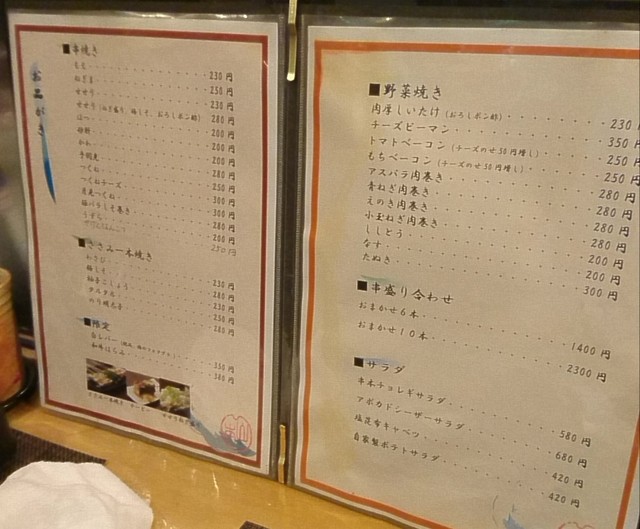 お品がき
■串焼き
もも 230円
ねぎま 250円
せせり 230円
せせり(ねぎ盛り、梅しそ、おろしポン酢) 280円
はつ 200円
砂肝 200円
かわ 200円
手羽先 280円
つくね 250円
つくねチーズ 300円
月見つくね 300円
豚バラしそ巻き 280円
うずら 200円
250円
■ささみ一本焼き
わさび 230円
梅しそ 280円
柚子こしょう 230円
タルタル 250円
のり明太子 280円
■限定
白レバー 350円
和牛はらみ 380円
■野菜焼き
肉厚しいたけ(おろしポン酢) 230
チーズピーマン 350円
トマトベーコン(チーズのせ50円増し) 250円
もちベーコン(チーズのせ50円増し) 250円
アスパラ肉巻き 280円
青ねぎ肉巻き 280円
えのき肉巻き 280円
小玉ねぎ肉巻き 280円
ししとう 200円
なす 200円
たぬき 300円
■串盛り合わせ
おまかせ6本 1400円
おまかせ10本 2300円
■サラダ
串木チョレギサラダ 580円
アボカドシーザーサラダ 680円
塩昆布キャベツ 420円
自家製ポテトサラダ 420円